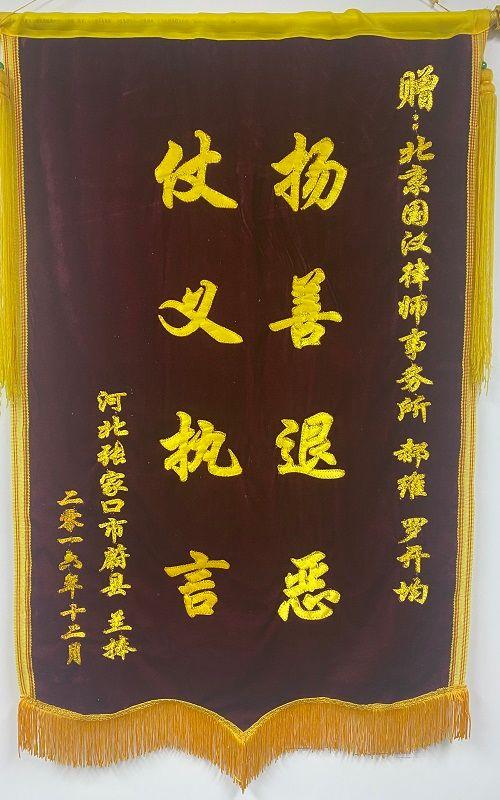 赠：北京国汉律师事务所 郝维 罗开均
扬善退恶
仗义执言
河北张家口市蔚县
二零一六年十二月